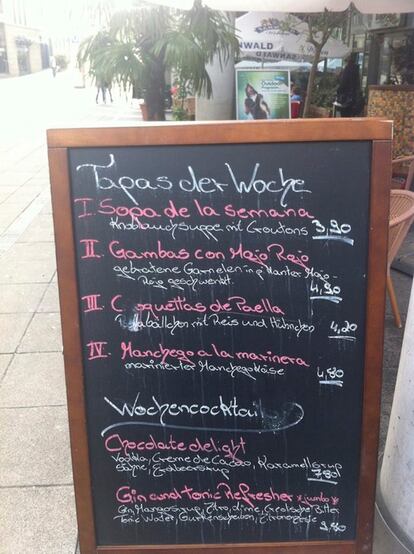 NWALD
Tapas der Woche
I. Sopa de la semana
Knoblauchsuppe mit Croutons 3,90
II. Gambas con Mojo Rojo
gebratene Garnelen in pikanter Mojo-
Rojo geschwenkt. 4,90
III. C oquettas de Paella
bällchen mit Reis und Hühnchen 4,20
IV. Manchego a la marinera
marinierter Manchegokäse 4,80
Wochencocktail
Chocolate delight
Vodka, Creme de Cacao, Karamellsirup
Sahne, Erdbeersirup 7,80
Gin and Tonic Refresher *jumbo*
Gin, Mangosirup, Zitro, Lime, Bitter
Tonic Water, Gurkenscheiben, Zitronenzeste 9,80